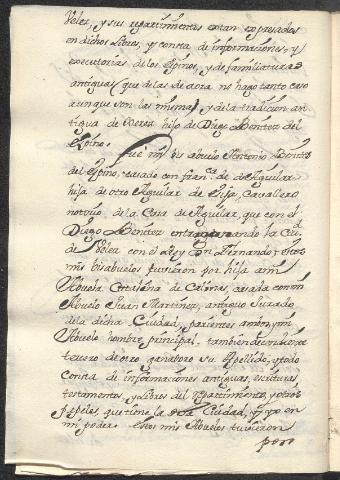 Velez, y sus repartimientos estan expresados
en dichos Libros, y consta de informaciones, y
executorias de los Espinos, y de familiaturas
antiguas que de las de aora no hago tanto caso
aunque son las mismas, y de la tradicion an
tigua de Perea hijo de Diego Benitez del
Espino.
Fué mi bis abuelo Antonio Benitez
del Espino, casado con fran.ca de Aguilar
hija de otro Aguilar de Eçija, Cavallero
notorio de la Casa de Aguilar, que con el
Diego Benitez entro ganando la Ciu.d
de Velez con el Rey Dn Fernando: Estos
mis bisabuelos tuvieron por hija a mi
Abuela Catalina de casada con mi
Abuelo Juan Martinez, antiguo Jurado
de la dicha Ciudad, parientes ambos y mi
Abuelo hombre principal, tambien descendiente
tercero de otro, ganadores su Apellido, y todo
consta de informaciones antiguas, escrituras
testamentos, y Libros del Repartimiento, y otros
papeles que tiene la Ciudad, y yo en
mi poder. Estos mis Abuelos tuvieron
por